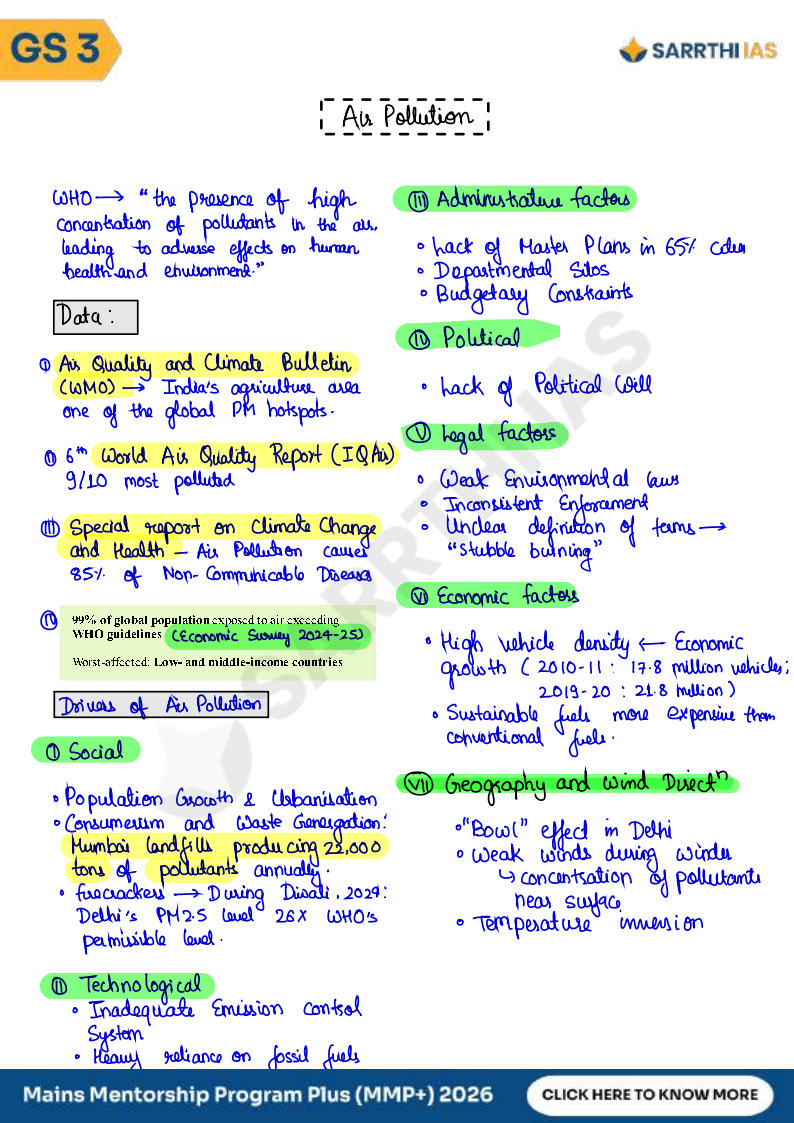 GS 3
SARRTHI IAS
Air Pollution
WHO → "the presence of high
concentration of pollutants in the air,
leading to adverse effects on human
health and environment."
Data :
(I) Air Quality and Climate Bulletin
(WMO) → India's agriculture area
one of the global PM hotspots.
(II) 6th World Air Quality Report (IQAir)
9/10 most polluted
(III) Special report on Climate Change
and Health – Air Pollution causes
85% of Non-Communicable Diseases
(IV) 99% of global population exposed to air exceeding
WHO guidelines (Economic Survey 2024-25)
Worst-affected: Low- and middle-income countries
Drivers of Air Pollution
(I) Social
• Population Growth & Urbanisation
• Consumerism and Waste Generation:
Mumbai landfills producing 22,000
tons of pollutants annually.
• firecrackers → During Diwali, 2024:
Delhi's PM2.5 level 26X WHO's
permissible level.
(II) Technological
• Inadequate Emission Control
System
• Heavy reliance on fossil fuels
(III) Administrative factors
• Lack of Master Plans in 65% cities
• Departmental Silos
• Budgetary Constraints
(IV) Political
• Lack of Political Will
(V) Legal factors
• Weak Environmental laws
• Inconsistent Enforcement
• Unclear definition of terms →
"stubble burning"
(VI) Economic factors
• High vehicle density ← Economic
growth (2010-11 : 17.8 million vehicles;
2019-20 : 21.8 million)
• Sustainable fuels more expensive than
conventional fuels.
(VII) Geography and Wind Directn
• "Bowl" effect in Delhi
• Weak winds during winter
↳ concentration of pollutants
near surface
• Temperature inversion
SARRTHI IAS
Mains Mentorship Program Plus (MMP+) 2026
CLICK HERE TO KNOW MORE